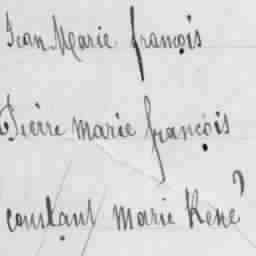 Jean Marie françois
Pierre marie françois
constant marie René